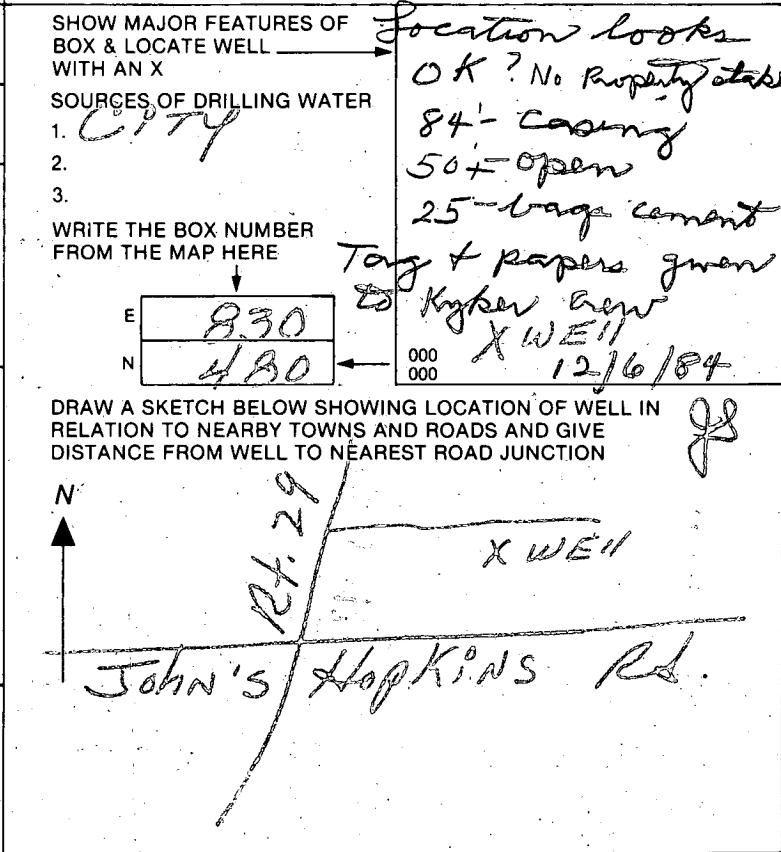 SHOW MAJOR FEATURES OF
BOX & LOCATE WELL
WITH AN X
SOURCES OF DRILLING WATER
1. CITY
2.
3.
WRITE THE BOX NUMBER
FROM THE MAP HERE
E 830
N 480
Location looks
OK? No Property stake
84'- Casing
50'± open
25-bags cement
Tag & papers given
to Kyker crew
X WEll
000
000
12/6/84
DRAW A SKETCH BELOW SHOWING LOCATION OF WELL IN
RELATION TO NEARBY TOWNS AND ROADS AND GIVE
DISTANCE FROM WELL TO NEAREST ROAD JUNCTION
N
Rt. 29
X WEll
JOHN'S HOPKINS Rd.